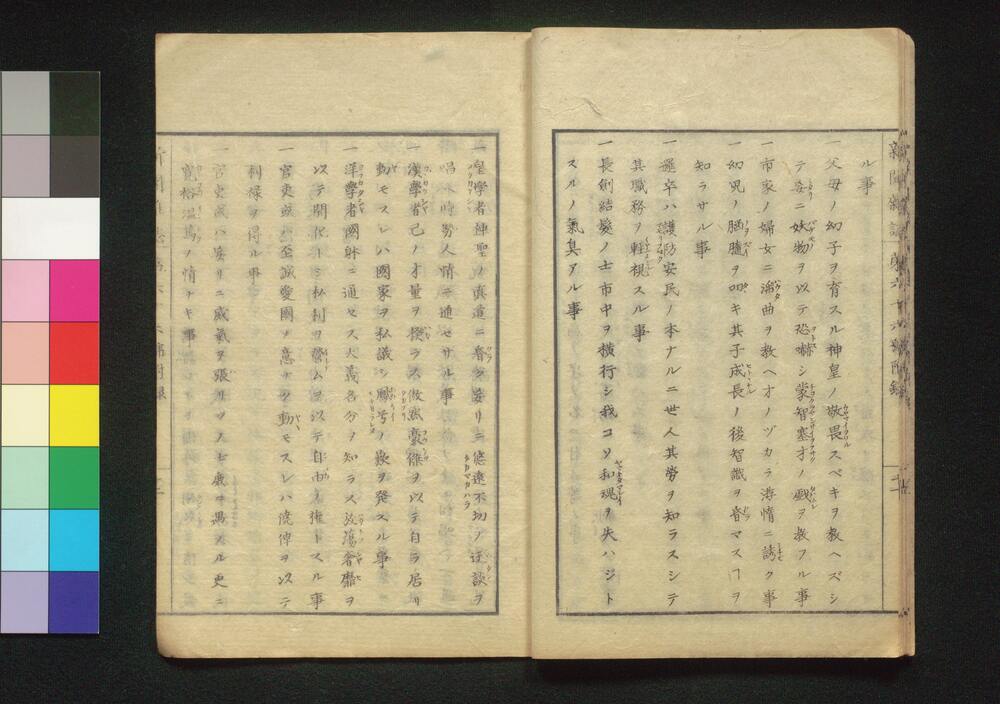 ル事
一父母ノ幼子ヲ育スル神皇ノ敬畏スベキヲ教ヘズシ
テ妄ニ妖物ヲ以テ恐嚇シ蒙智塞才ノ戯ヲ教フル事
一市家ノ婦女ニ淫曲ヲ教ヘオノヅカラ游惰ニ誘ク事
一幼児ノ腦臚ヲ叩キ其子成長ノ後智識ヲ昏マスヿヲ
知ラサル事
一邏卒ハ護防安民ノ本ナルニ世人其勞ヲ知ラスシテ
其職務ヲ軽視スル事
一長劍結髮ノ士市中ヲ横行シ我コソ和魂ヲ失ハジト
スルノ氣臭アル事
一皇學者神聖ノ真道ニ昏ク妄リニ悠遠不切ノ迂談ヲ
唱ヘ時勢人情ニ通セサル事
一漢學者己ノ才量ヲ揆ラス傲然豪傑ヲ以テ自ラ居リ
動モスレハ國家ヲ私議シ ノ嘆ヲ発スル事
一洋學者國躰ニ通セス大義名分ヲ知ラス放蕩奢靡ヲ
以テ開化トシ私利ヲ營ムヲ以テ自由ノ権トスル事
一官吏或ハ至誠愛國ノ意ナク動モスレハ僥倖ヲ以テ
利禄ヲ得ル事
一官吏或ハ妄リニ威氣ヲ張リ ノ七戯ニ遇スル更ニ
寛裕温篤ノ情ナキ事